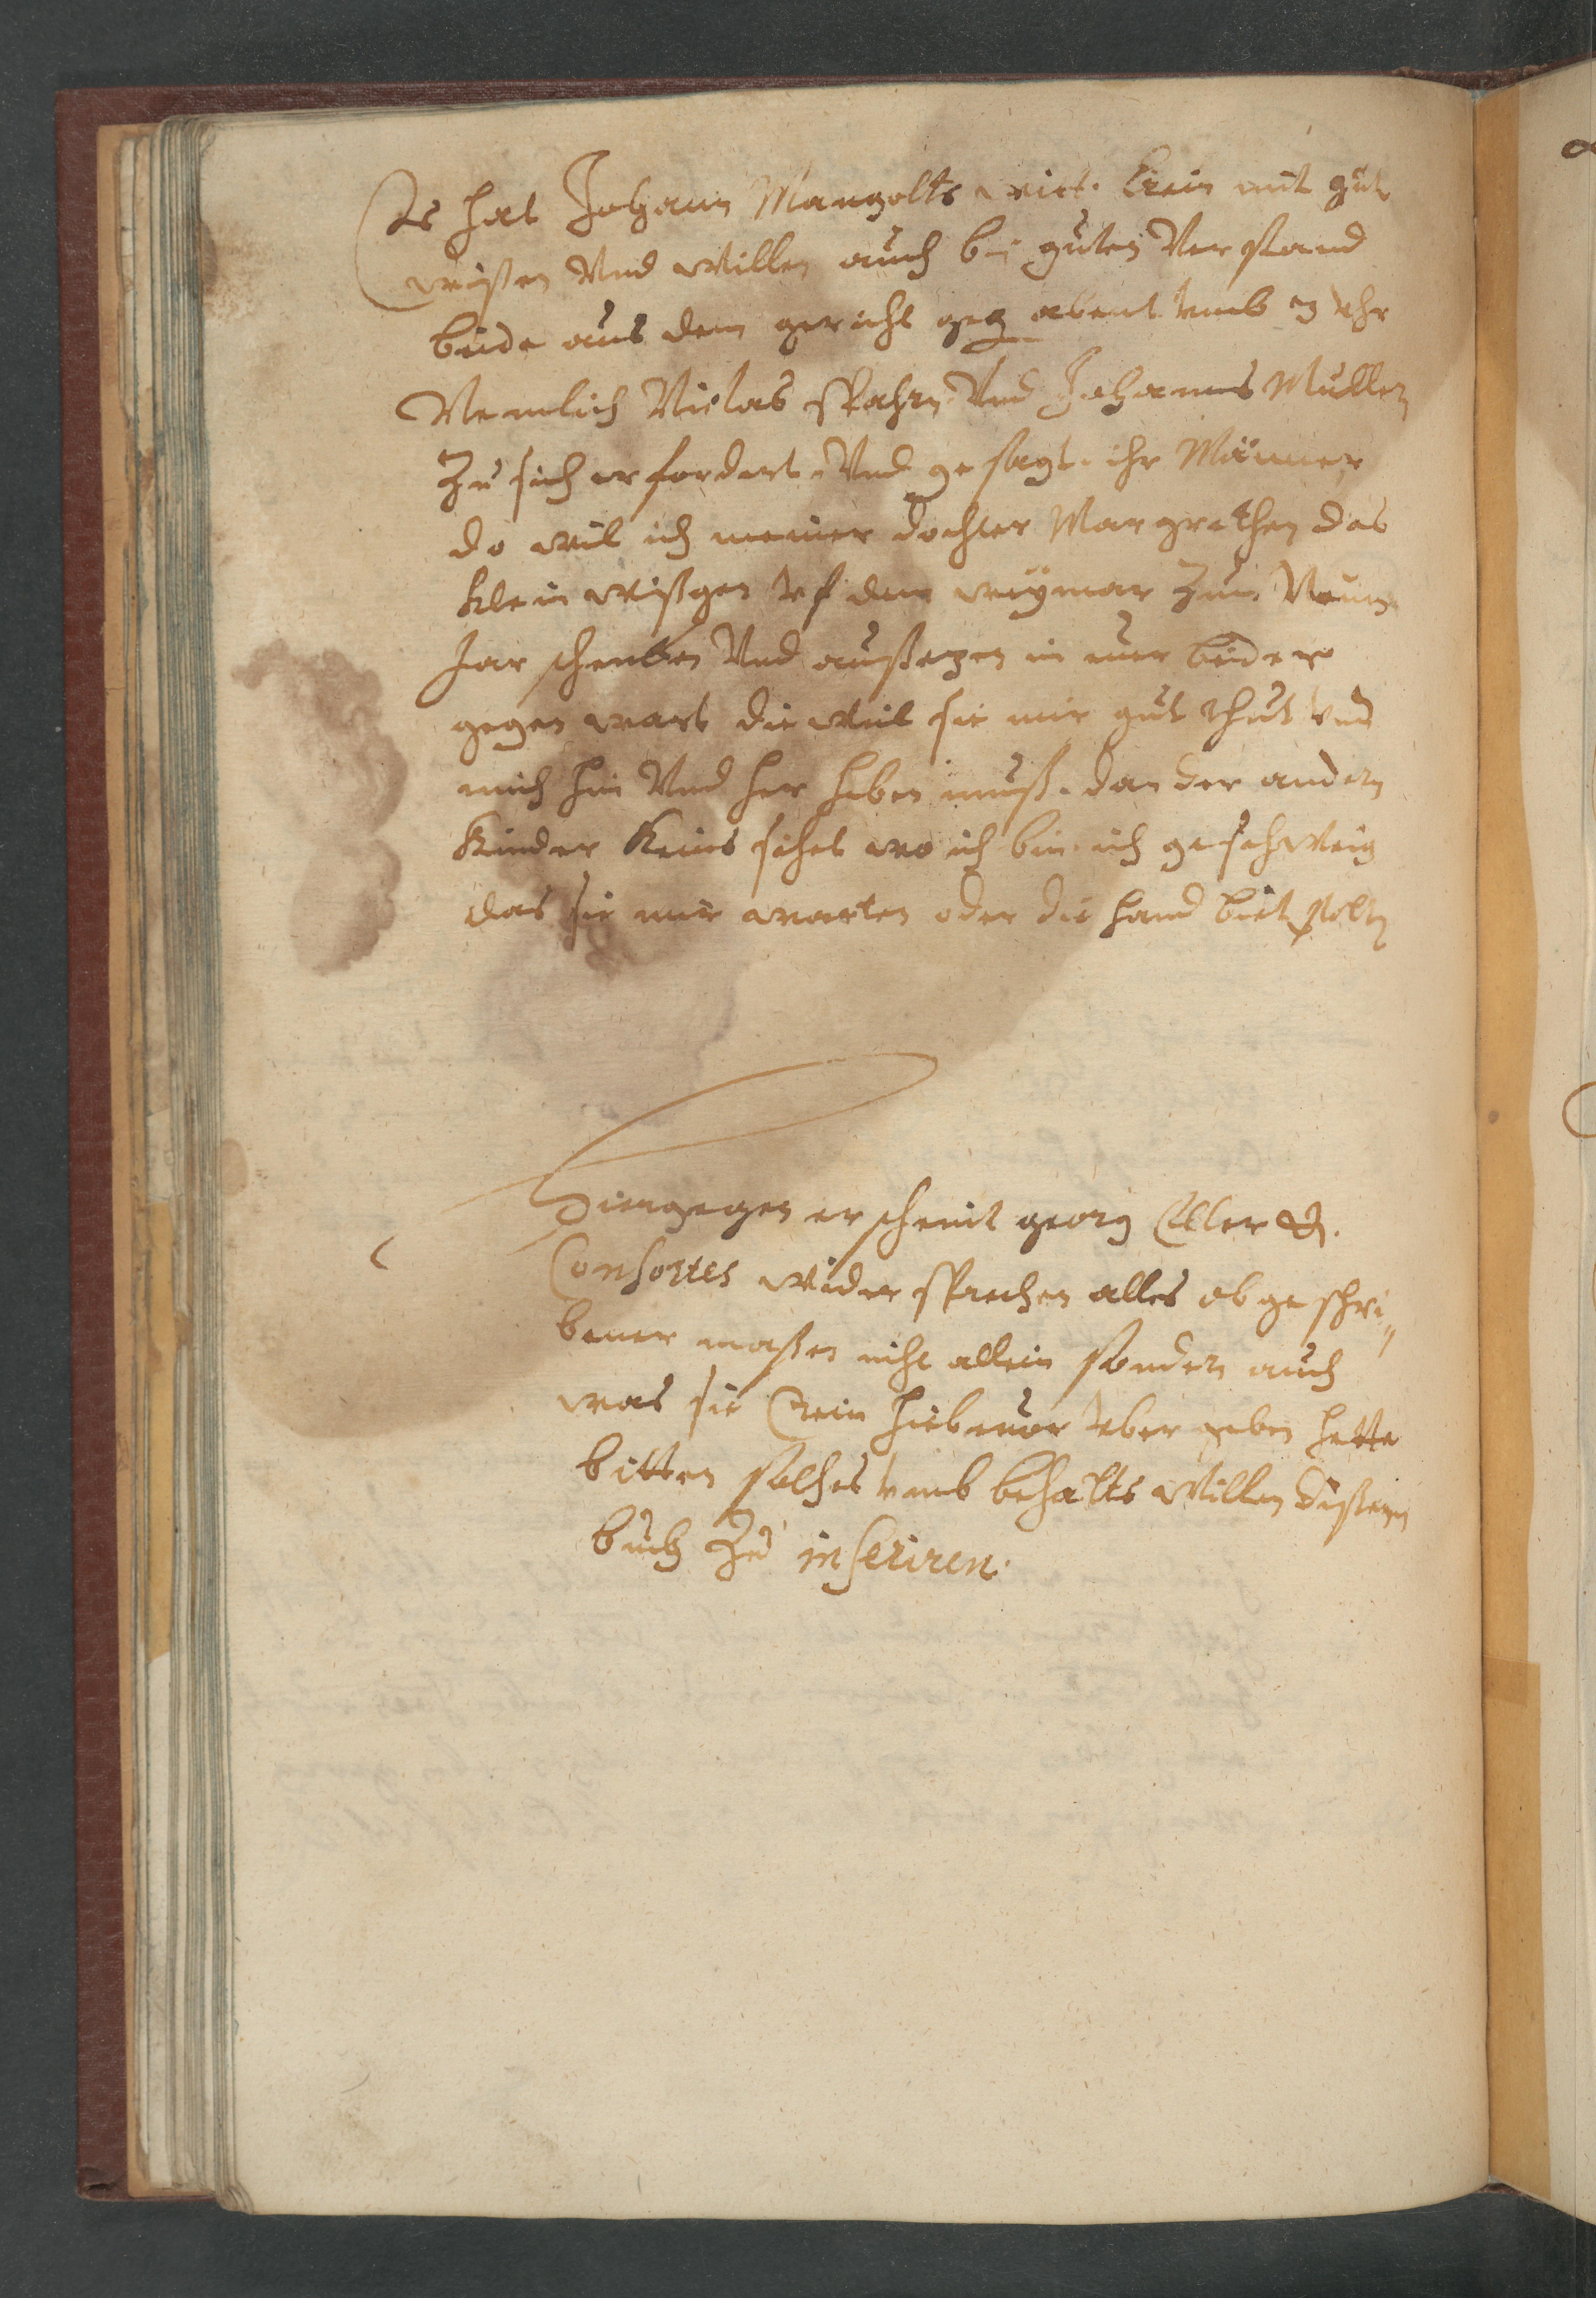 Es hat Johann Mangolts wit. Crein mit gut
wißen Vnd willen auch bei guten Verstand
beide aus dem gericht geg abent vmb 3 Vhr
Nemlich Niclas Spahn Vnd Johannes Muller
Zu sich erfordert Vnd gesagt. ihr Männer
do wil ich meiner dochter Margrethen das
klein wißgen vf dem weymar zum Neuen
Jar schencken Vnd außsezen in euer beider
gegenwart die weil sie mir gut thut vnd
mich hin Vnd her heben muß. dan der andern
Kinder Keins sihet wo ich bin. ich geschweig
das sie mir warten oder die hand biet solten
Hiengegen erscheint georg Eller &.
Consortes widersprechen alles obgeschri„
bener maßen nicht allein sondern auch
was sie Crein hiebeuor vbergeben hette
bitten solches vmb behalts willen dißem
buch zu inseriren.